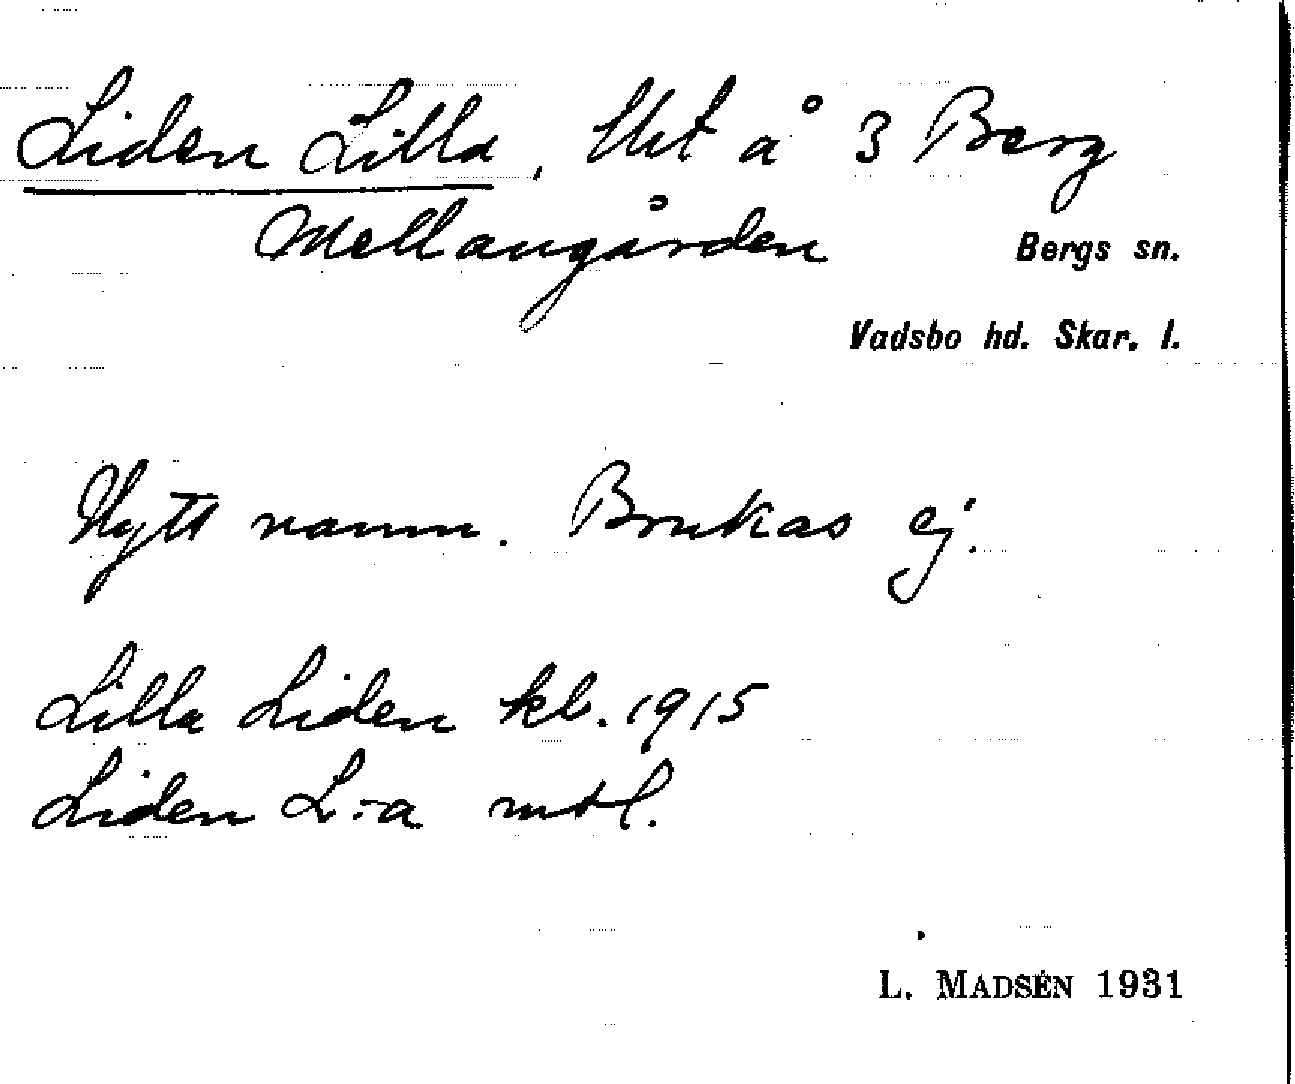 Liden Lilla, tht å 3 Berg
Mellangården Bergs sn.
Vadsbo hd. Skar. l.
Nytt namn. Brukas ej.
Lilla Liden kb. 1915
Liden L:a mtl.
L. MADSÉN 1931